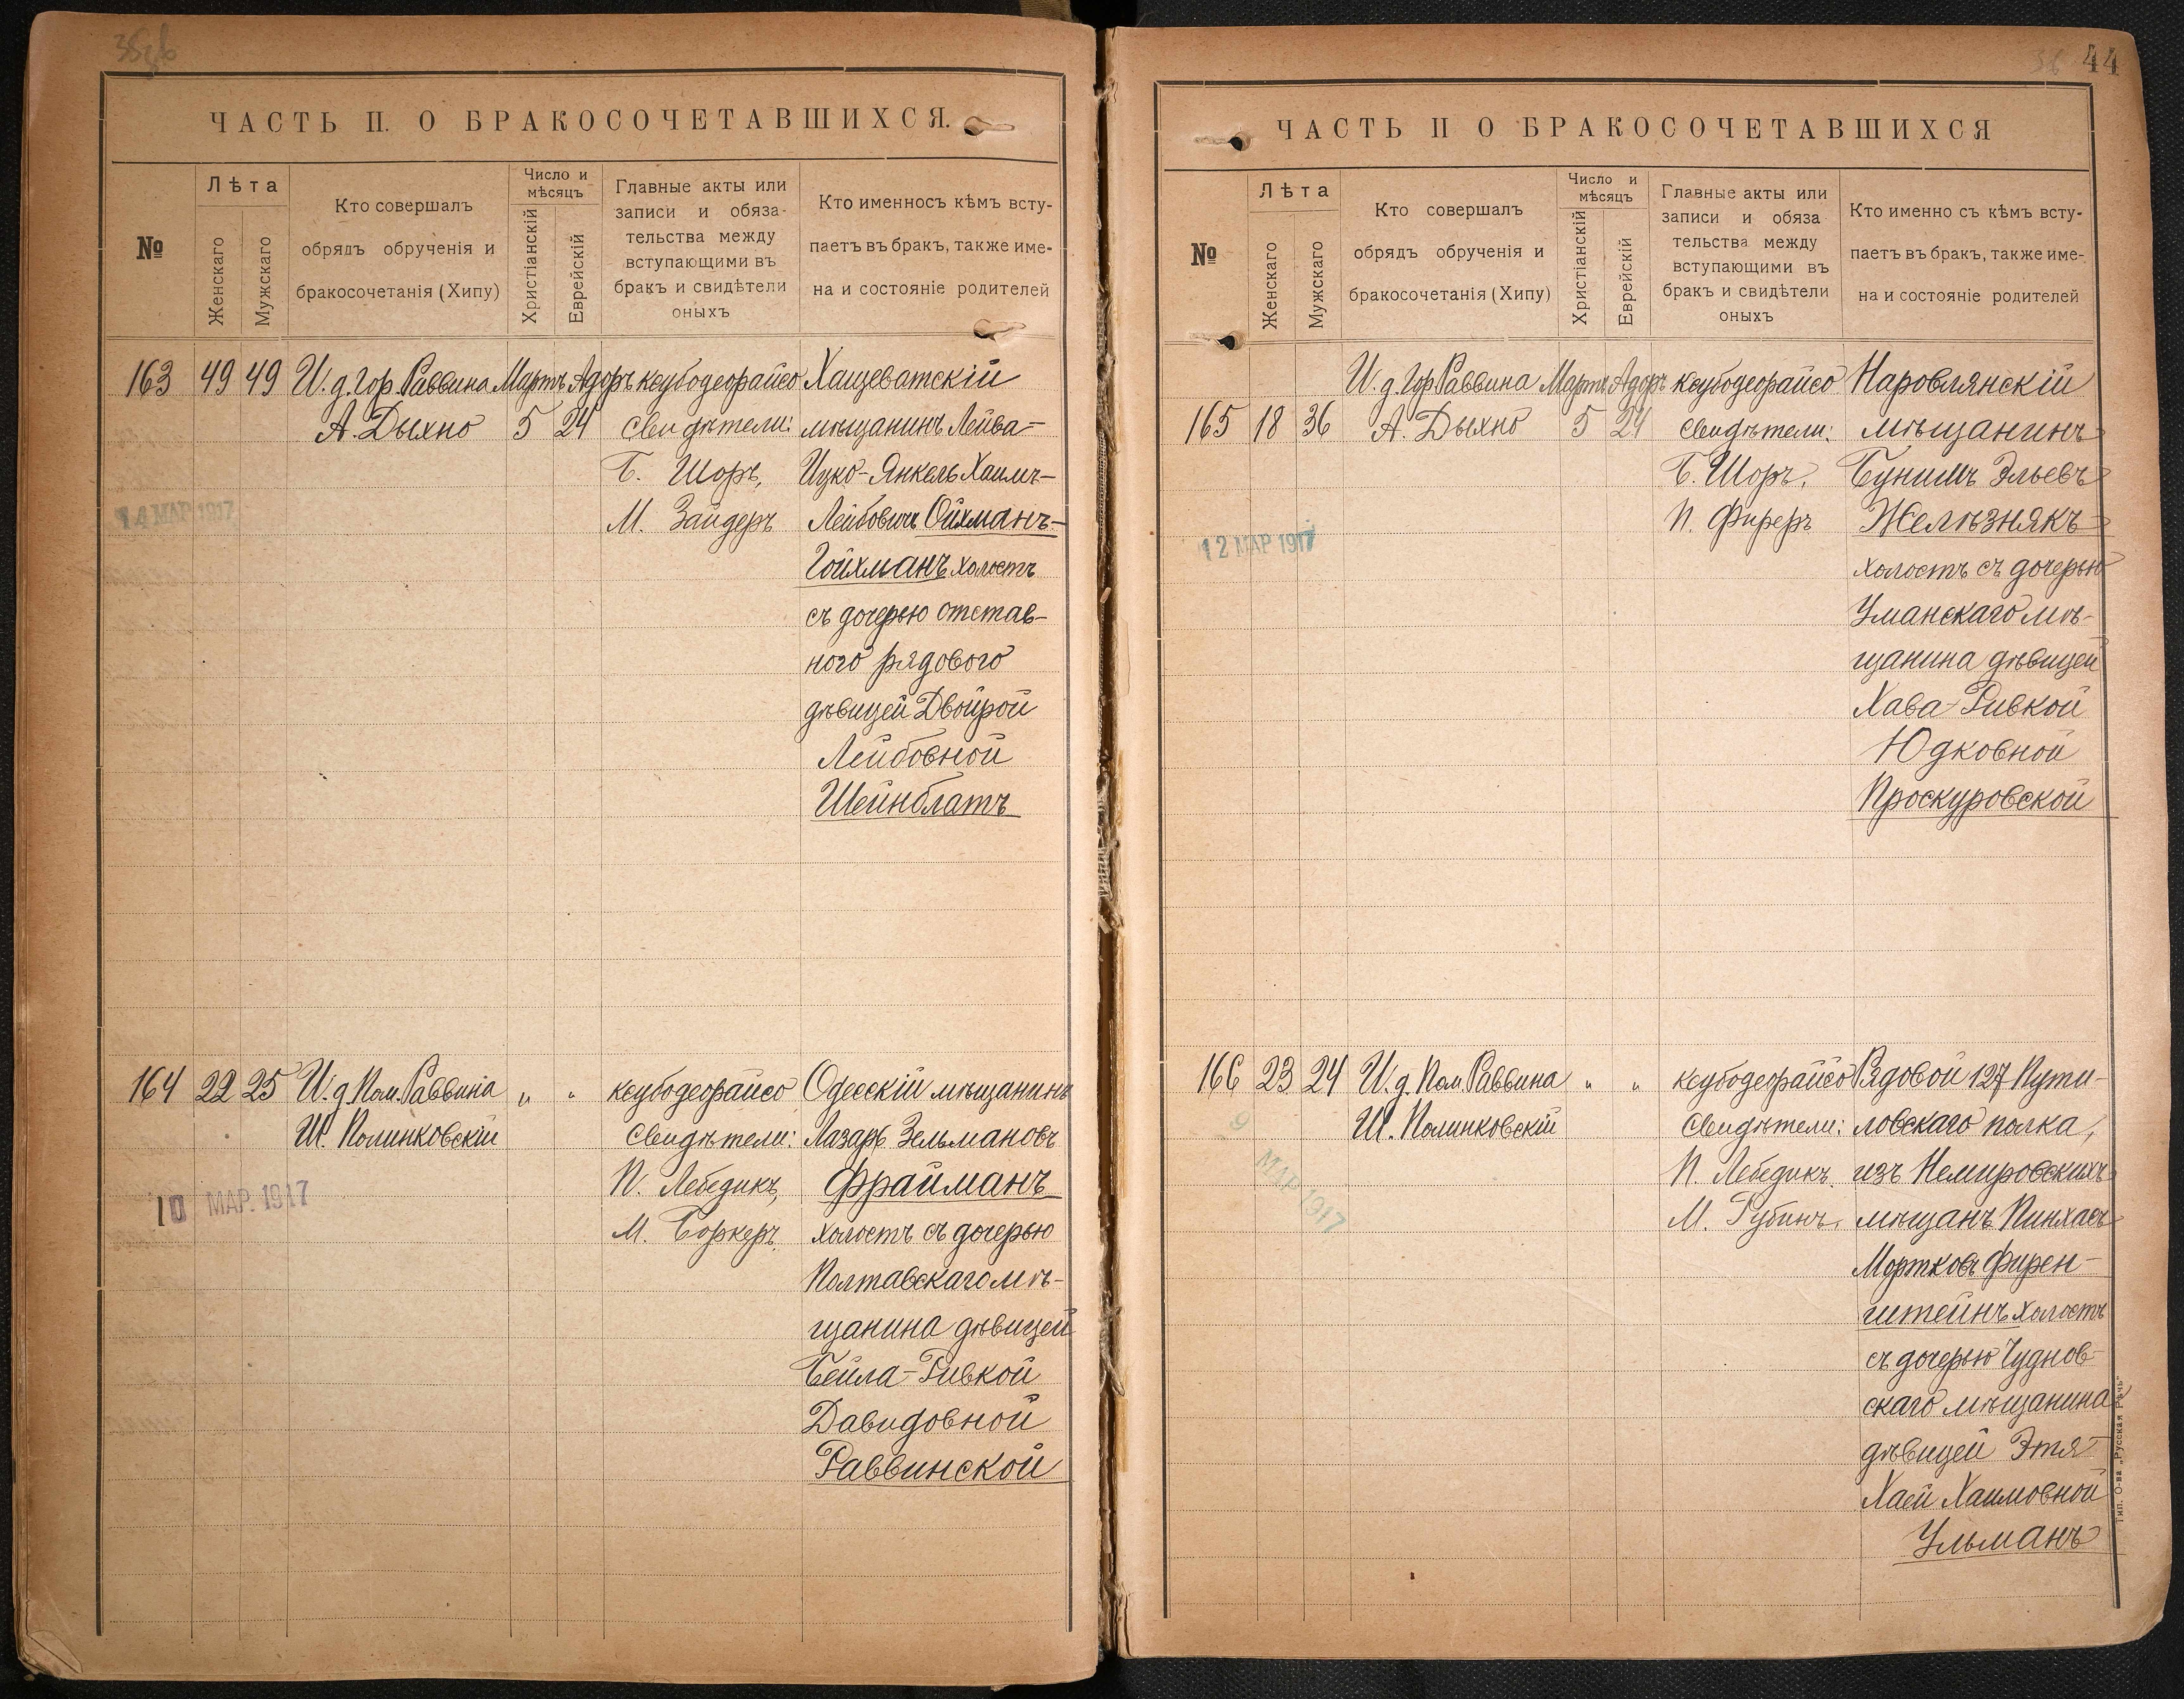 ЧАСТЬ II. О БРАКОСОЧЕТАВШИХСЯ.
№
Лѣта
Женскаго
Мужскаго
Кто совершалъ
обрядъ обрученія и
бракосочетанія (Хипу)
Число и
мѣсяцъ
Христіанскій
Еврейскій
Главные акты или
записи и обяза-
тельства между
вступающими въ
бракъ и свидѣтели
оныхъ
Кто именносъ кѣмъ всту-
паетъ въ бракъ, также име-
на и состояніе родителей
163 49 49 И. д. Гор. Раввина Мартъ Адоръ ксубодеорайсо Хащеватскій
А. Дыхно 5 24 Свидѣтели: мѣщанинъ Лейва-
Б. Шоръ, Ицко-Янкель Хаимъ-
М. Зайдеръ Лейбовичъ Ойхманъ-
14 МАР 1917
Гойхманъ холостъ
съ дочерью отстав-
ного рядового
дѣвицей Двойрой
Лейбовной
Шейнблатъ
164 22 25 И. д. Пом. Раввина " " ксубодеорайсо Одесскій мѣщанинъ
Ш. Полинковскій Свидѣтели: Лазарь Зельмановъ
П. Лебедикъ, Фрайманъ
10 МАР. 1917
М. Боркеръ. холостъ съ дочерью
Полтавскаго мѣ-
щанина дѣвицей
Бейла-Ривкой
Давидовной
Раввинской
44
ЧАСТЬ II О БРАКОСОЧЕТАВШИХСЯ
№
Лѣта
Женскаго
Мужскаго
Кто совершалъ
обрядъ обрученія и
бракосочетанія (Хипу)
Число и
мѣсяцъ
Христіанскій
Еврейскій
Главные акты или
записи и обяза
тельства между
вступающими въ
бракъ и свидѣтели
оныхъ
Кто именно съ кѣмъ всту-
паетъ въ бракъ, также име-
на и состояніе родителей
И. д. Гор. Раввина Мартъ Адоръ ксубодеорайсо Наровлянскій
165 18 36 А. Дыхно 5 24 Свидѣтели: мѣщанинъ
Б. Шоръ, Бунимъ Эльевъ
П. Фиреръ Желѣзнякъ
12 МАР 1917
холостъ съ дочерью
Уманскаго мѣ-
щанина дѣвицей
Хава-Ривкой
Юдковной
Проскуровской
166 23 24 И. д. Пом. Раввина " " ксубодеорайсо Рядовой 127 Пути-
Ш. Полинковскій Свидѣтели: ловскаго полка,
П. Лебедикъ. изъ Немировскихъ
М. Рубинъ. мѣщанъ Пинхасъ
9 МАР 1917
Мортковъ Фирен-
штейнъ холостъ
съ дочерью Чуднов-
скаго мѣщанина
дѣвицей Этя-
Хаей Хаимовной
Ульманъ
Тип. О-ва „Русская Рѣчь“